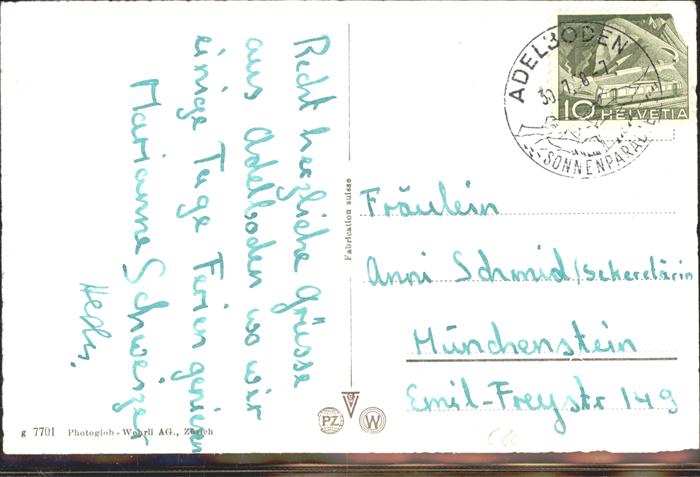 Recht herzliche Grüsse
aus Adelboden wo wir
einige Tage Ferien genießen
Marianne Schweizer
Hedy.
Fabrication suisse
ADELBODEN
30.
SONNENPARAD
10 HELVETIA
Fräulein
Anni Schmid/Sekretärin
Münchenstein
Emil-Freystr 149
PZ
W
g 7701 Photoglob-Wehrli AG., Zürich